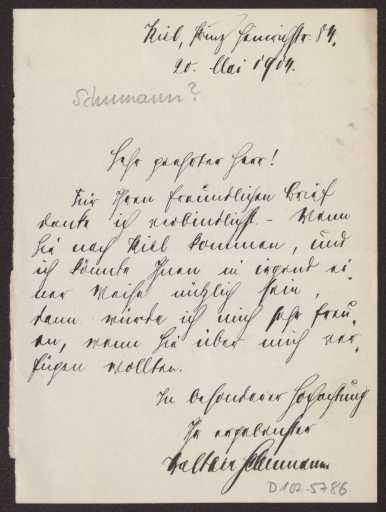 Kiel, Prinz Heinrichstr. 84.
20. Mai 1914.
Schumann?
Sehr geehrter Herr!
Für Ihren freundlichen Brief
danke ich verbindlichst. – Wenn
Sie nach Kiel kommen, und
ich könnte Ihnen in irgend ei-
ner Weise nützlich sein,
dann würde ich mich sehr freu-
en, wenn Sie über mich ver-
fügen wollten.
In besonderer Hochachtung
Ihr ergebenster
Walther
D 102-5786